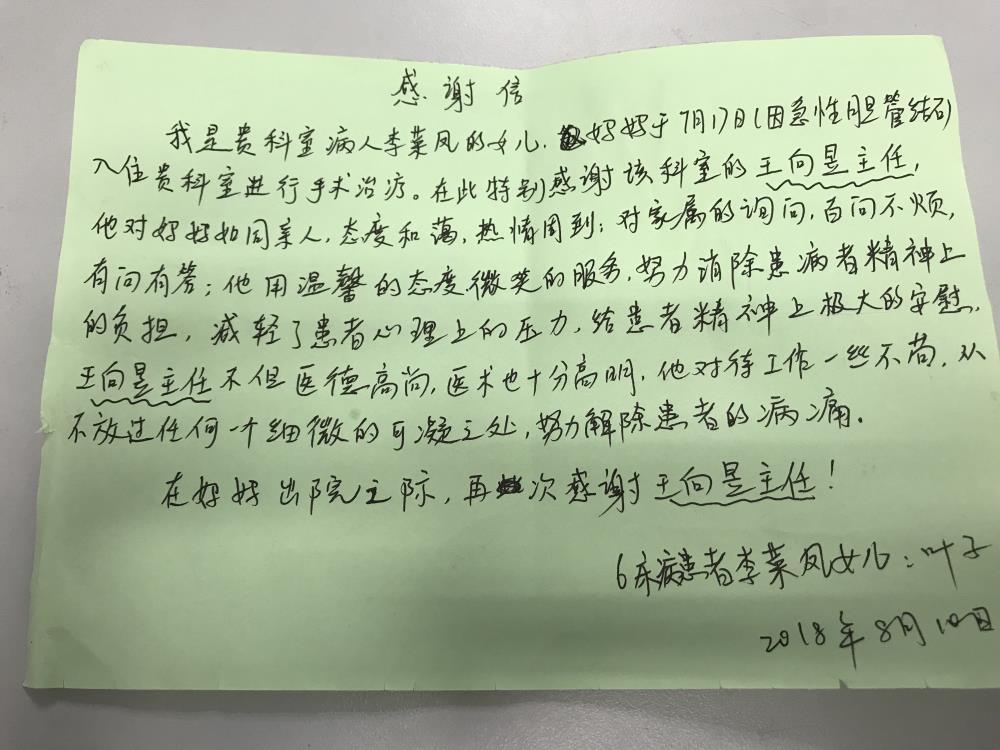 感谢信
我是贵科室病人李菜凤的女儿，妈妈于7月17日（因急性胆管结石）
入住贵科室进行手术治疗。在此特别感谢该科室的王向昱主任，
他对妈妈如同亲人，态度和蔼，热情周到；对家属的询问，百问不烦，
有问有答；他用温馨的态度，微笑的服务，努力消除患病者精神上
的负担，减轻了患者心理上的压力，给患者精神上极大的安慰，
王向昱主任不但医德高尚，医术也十分高明，他对待工作一丝不苟，从
不放过任何一个细微的可凝之处，努力解除患者的病痛。
在妈妈出院之际，再次感谢王向昱主任！
6床病患者李菜凤女儿：叶子
2018年8月10日